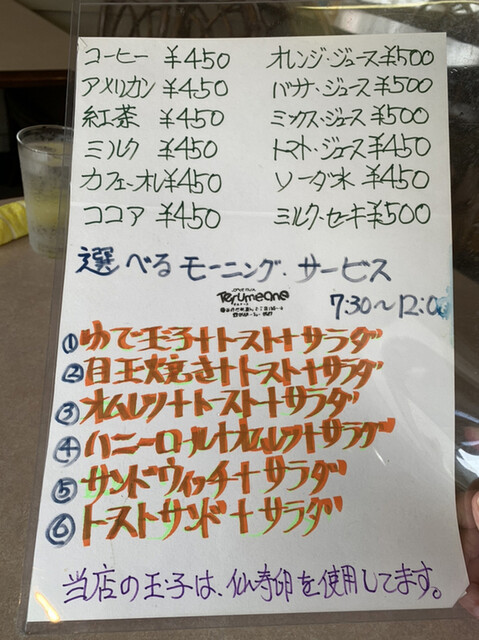 コーヒー ¥450
アメリカン ¥450
紅茶 ¥450
ミルク ¥450
カフェ・オレ ¥450
ココア ¥450
オレンジ・ジュース ¥500
バナナ・ジュース ¥500
ミックス・ジュース ¥500
トマト・ジュース ¥450
ソーダ水 ¥450
ミルク・セーキ ¥500
選べるモーニング・サービス
Terumeane
7:30〜12:00
①ゆで玉子+トースト+サラダ
②目玉焼き+トースト+サラダ
③オムレツ+トースト+サラダ
④ハニーロール+オムレツ+サラダ
⑤サンドウィッチ+サラダ
⑥トーストサンド+サラダ
当店の玉子は、仙寿卵を使用してます。